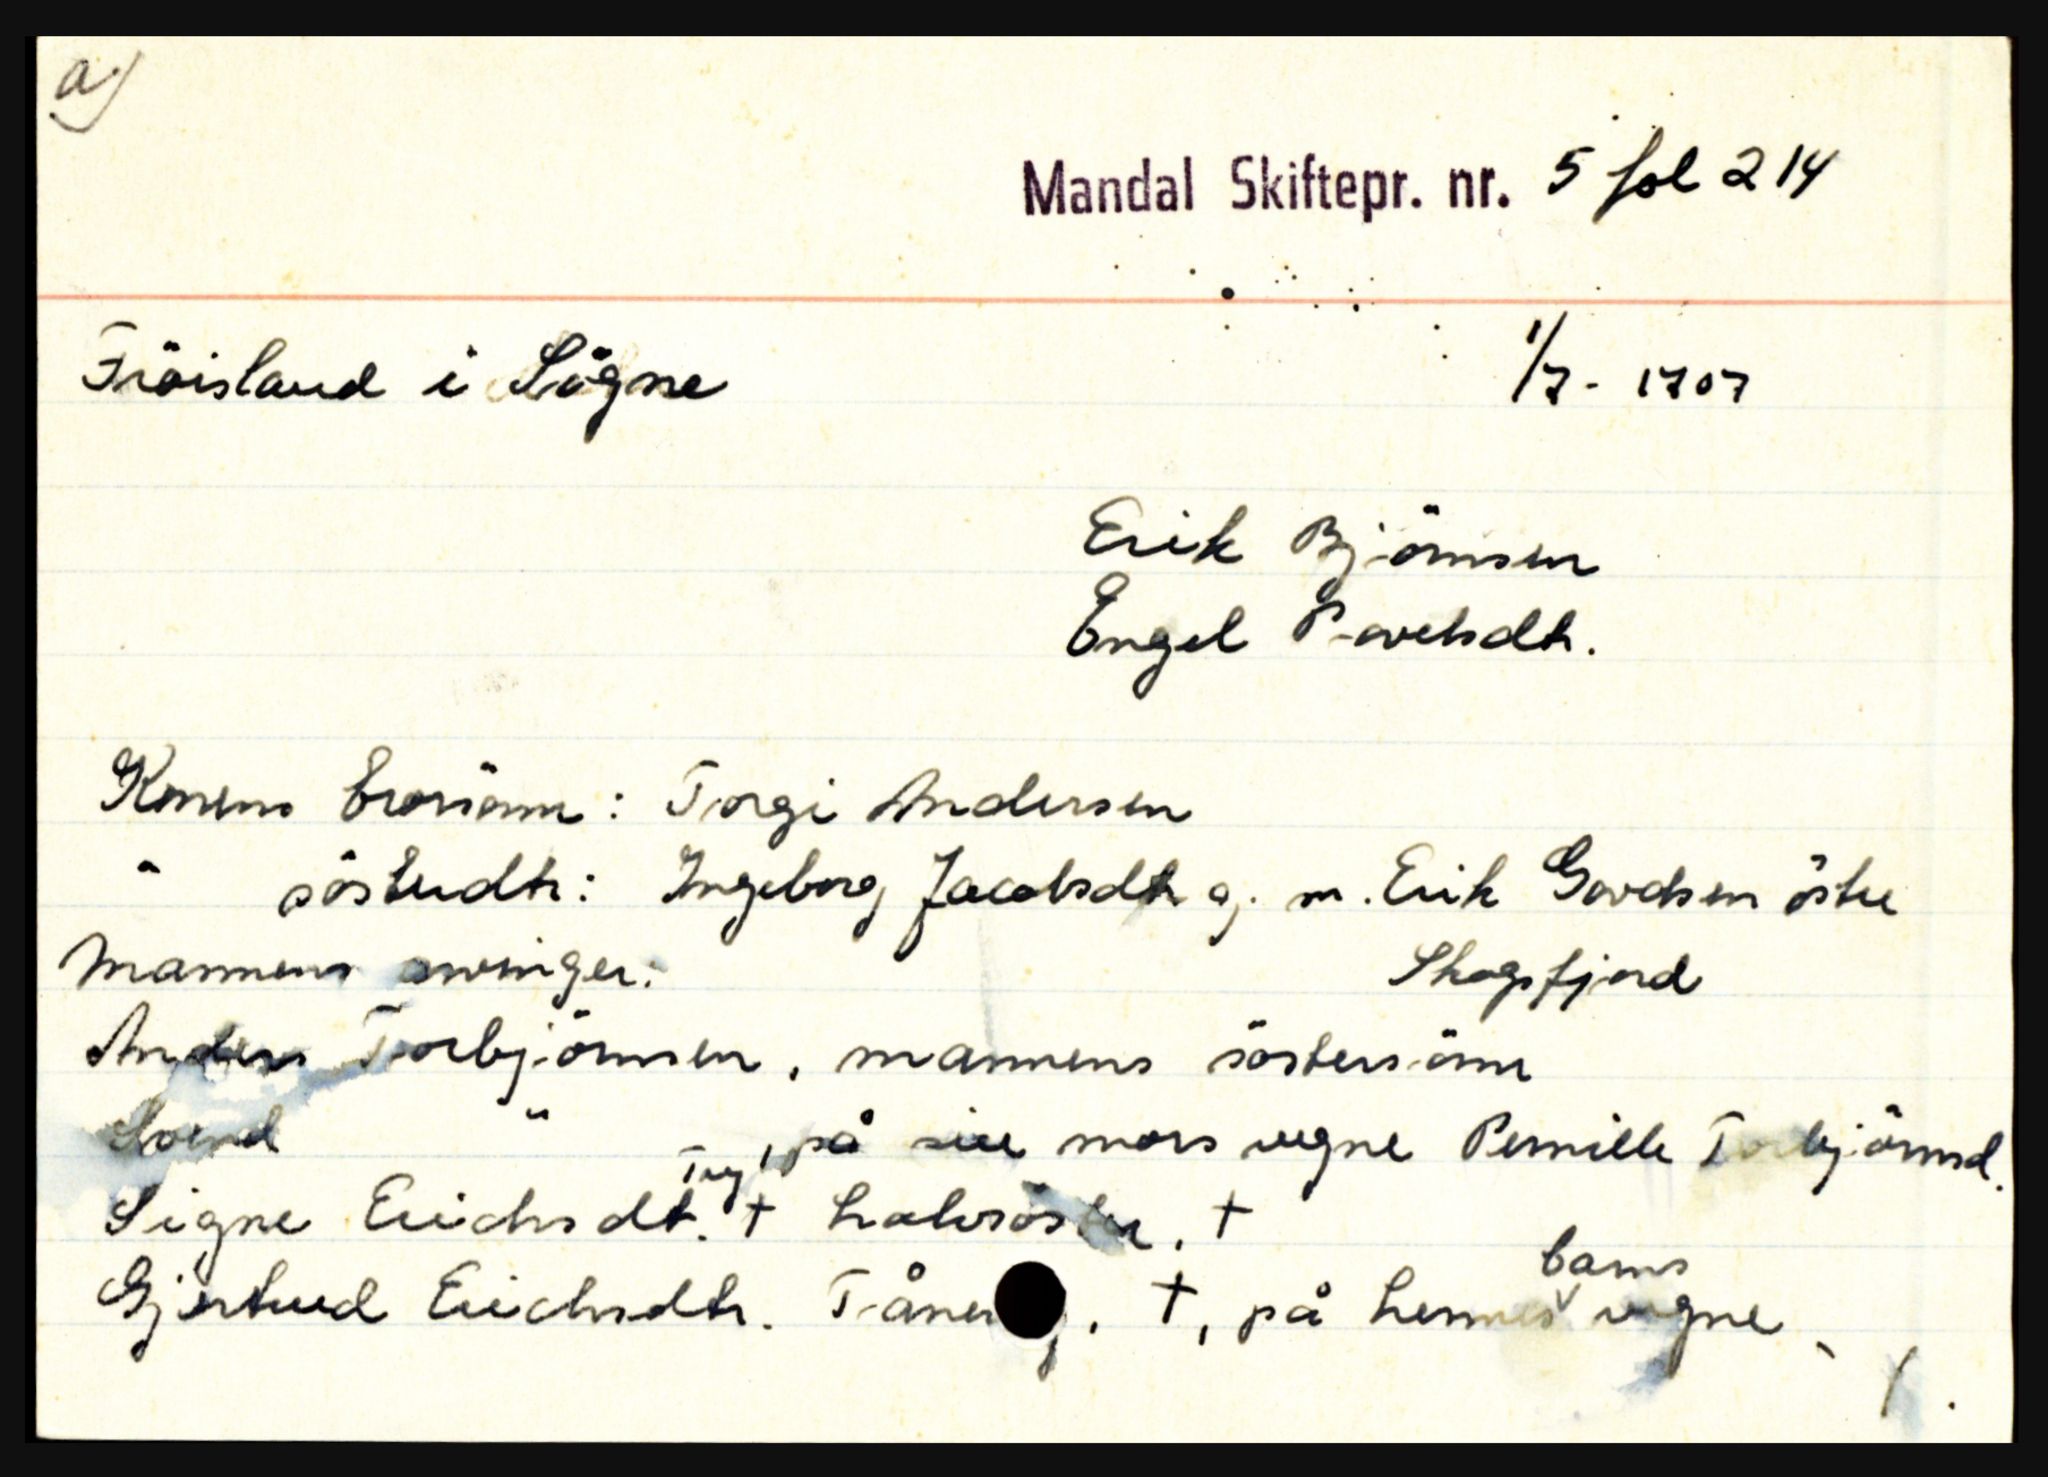 a)
Mandal Skiftepr. nr. 5 fol 214
Fröisland i Sögne 1/7- 1707
Erik Björnsen
Engel Povelsdtr.
Konens brorsönn: Torgi Andersen
" sösterdtr: Ingeborg Jacobsdtr g. m. Erik Govertsen östre
Skogsfjord
Mannens arvinger:
Anders Torbjörnsen, mannens söstersönn
Svend " , på sin mors vegne Pernille Torbjörnsd.
Signe Erichsdt. † halvsöster, †
Gjertrud Erichsdtr. †, på hennes barns vegne